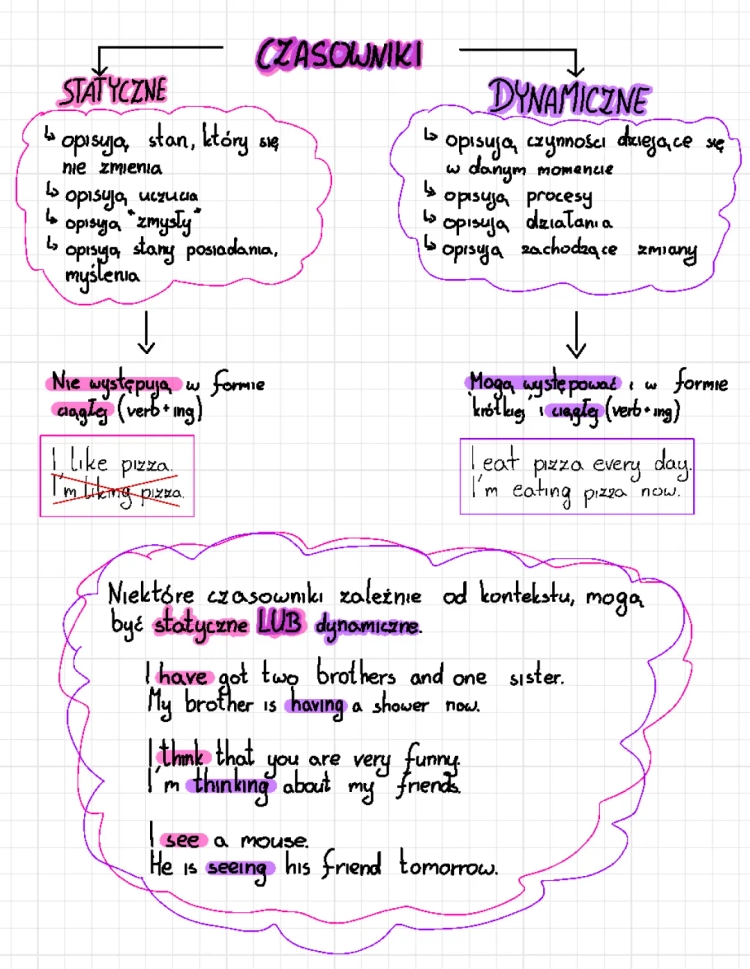 CZASOWNIKI
STATYCZNE
↳ opisują stan, który się
nie zmienia
↳ opisują uczucia
↳ opisują "zmysły"
↳ opisują stany posiadania,
myślenia
Nie występują w formie
ciągłej (verb + ing)
I like pizza.
I'm liking pizza.
DYNAMICZNE
↳ opisują czynności dziejące się
w danym momencie
↳ opisują procesy
↳ opisują działania
↳ opisują zachodzące zmiany
Mogą występować i w formie
"krótkiej" i ciągłej (verb + ing)
I eat pizza every day.
I'm eating pizza now.
Niektóre czasowniki zależnie od kontekstu, mogą
być statyczne LUB dynamiczne.
I have got two brothers and one sister.
My brother is having a shower now.
I think that you are very funny.
I'm thinking about my friends.
I see a mouse.
He is seeing his friend tomorrow.